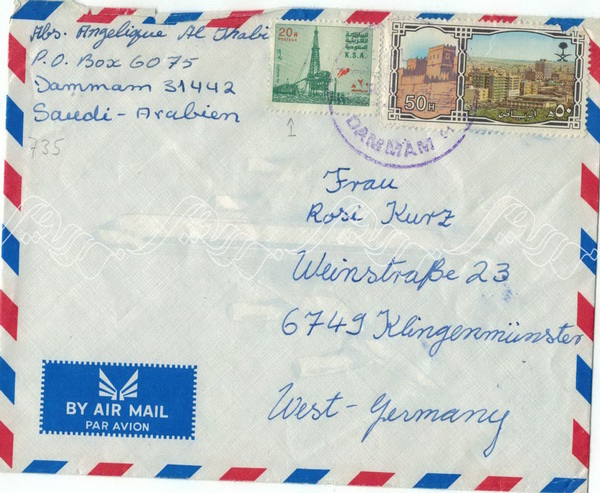 Abs. Angelique Al Thabi
P.O. Box 6075
Dammam 31442
Saudi-Arabien
735
20H
POSTAGE
K.S.A.
1
50H
٥٠هـ
الرياض
DAMMAM
Frau
Rosi Kurz
Weinstraße 23
6749 Klingenmünster
West-Germany
BY AIR MAIL
PAR AVION